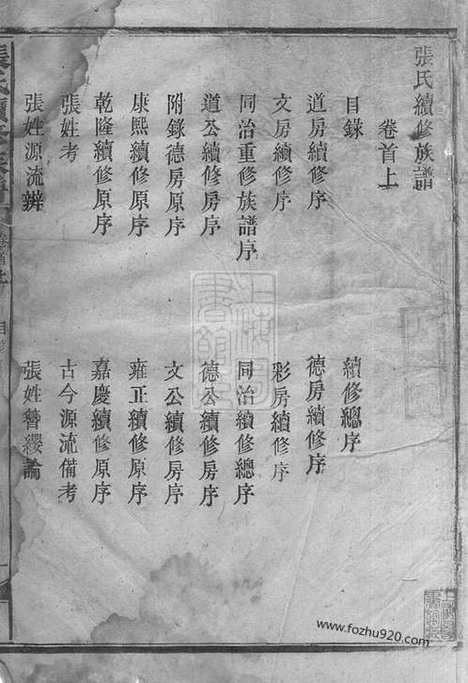 張氏續修族譜
卷首上
目錄
續修總序
道房續修序
德房續修序
文房續修序
彩房續修序
同治重修族譜序
同治續修總序
道公續修房序
德公續修房序
附錄德房原序
文公續修房序
康熙續修原序
雍正續修原序
乾隆續修原序
嘉慶續修原序
張姓考
古今源流備考
張姓源流辨
張姓簪纓論
www.fozhu920.com